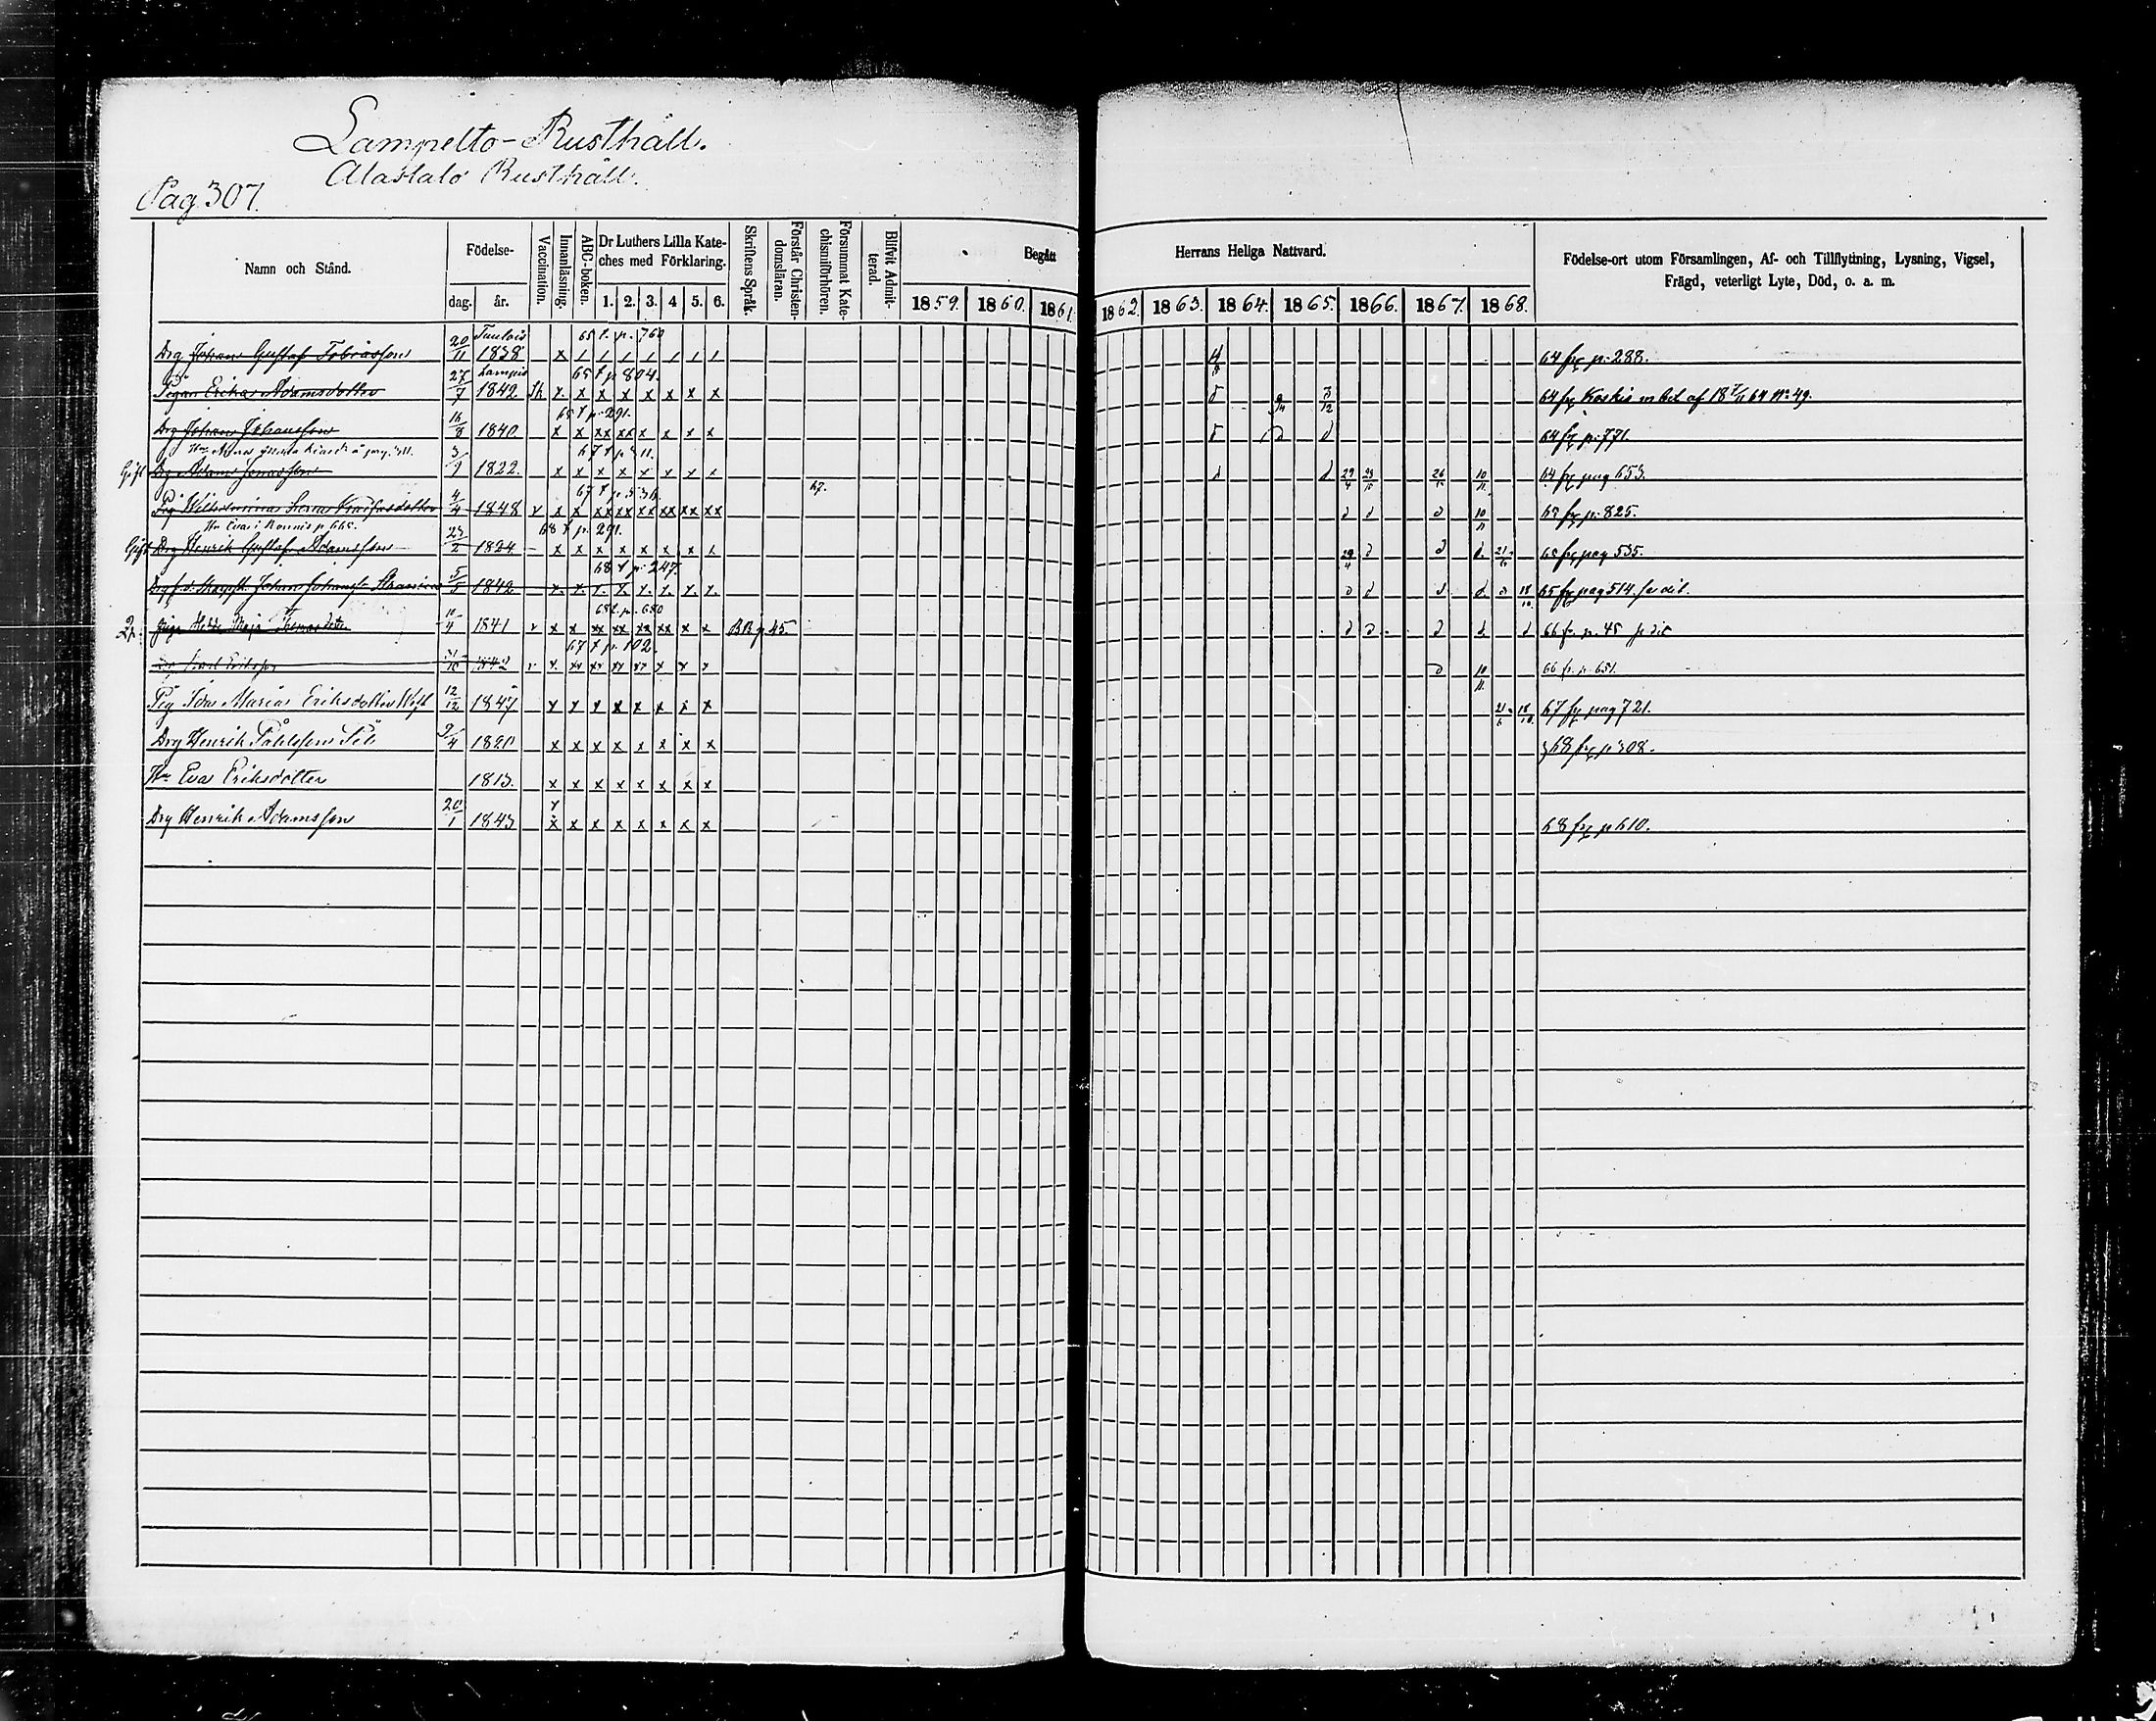 Lampelto-Rusthåll.
Alastalo Rusthåll.
Pag. 307.
Namn och Stånd. Födelse- dag. år. Vaccination. Innanläsning. ABC-boken. Dr Luthers Lilla Kateches med Förklaring. 1. 2. 3. 4 5. 6. Skriftens Språk. Förstår Christendomsläran. Försummat Katechismiförhören. Blifvit Admitterad. Begått Herrans Heliga Nattvard. Födelse-ort utom Församlingen, Af- och Tillflyttning, Lysning, Vigsel, Frägd, veterligt Lyte, Död, o. a. m.
1859. 1860. 1861. 1862. 1863. 1864. 1865. 1866. 1867. 1868.
Tuulois 65 t. p. 760
Drg Johan Gustaf Tobiasson 20/11 1838 x / / / / / / / 64 fr p. 288.
Lampis 65 t p 804.
Pigan Erika Adamsdotter 27/7 1842 x x x x x x x x 3/12 64 fr Koskis m bet af 18 7/11 64 No 49.
65 t p. 291.
Drg Johan Johansson 16/8 1840 x x xx xx x x x x 64 fr p. 771.
67 t p 311.
Gift Drg Adam Jonasson 1822. x x x x x x x x 29/4 26/10 10/11 64 fr pag 653.
67 t p 536 67.
Pig Wilhelmina 4/4 1848 v x x xx xx xx xx xx xx 10/11 65 fr p. 825.
Hu Eva i 68 t p. 291.
Gift Drg Henrik Gustaf Adamsson 23/2 1824 x x x x x x x x 29/4 65 fr pag 535.
68 t p. 247.
Johan 5/5 1842 x. x. x. x. x. x. x. x. 18/10 65 fr pag 514.
68 t. p. 680
Hedda Maja Thomasdotter 1841 v x x xx xx xx xx x x BB p 45. 66 fr. p. 45
67 t p. 102.
Drg Karl Eriksson 1842 v x. xx xx xx xx x x x 10/11. 66 fr. p. 651.
Pig Ida Maria Eriksdotter 12/12 1847 x x x x x x x x 18/10 67 fr pag 721.
Drg Henrik Påhlsson 9/4 1820 x x x x x x x x 68 fr p 308.
Hu Eva Eriksdotter 1813. x x x x x x x x
Drg Henrik Adamsson 20/1 1843 x x x x x x x x 68 fr p 610.